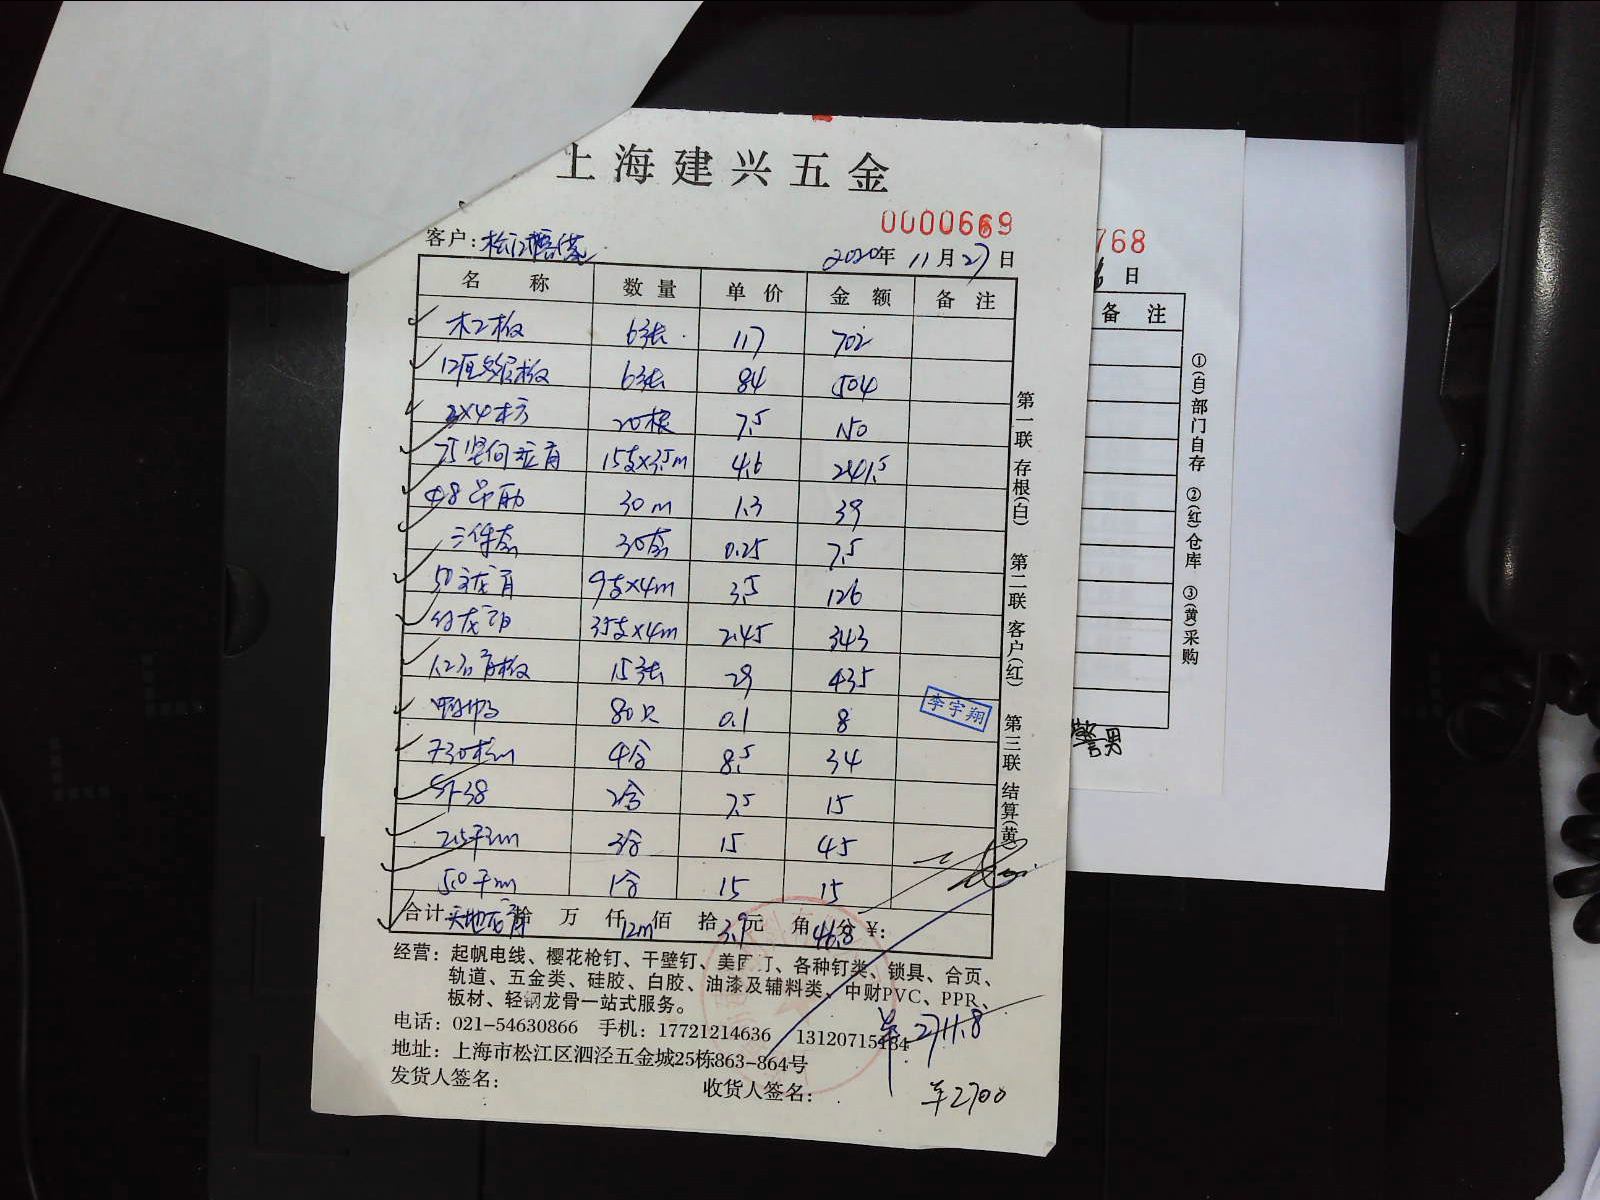 上海建兴五金
0000669
客户: 松江 2020年 11月 27日
名 称 数 量 单 价 金 额 备 注
木工板 6张 117 702
12厘多层板 6张 84 504
2×4木方 20根 7.5 150
75竖向龙骨 15支×3.5m 4.6 241.5
φ8吊筋 30m 1.3 39
三件套 30套 0.25 7.5
50主龙骨 9支×4m 3.5 126
付龙骨 35支×4m 2.45 343
1.2石膏板 15张 29 435
80只 0.1 8
F30 4合 8.5 34
38 2合 7.5 15
2.5干 3合 15 45
5.0干 1合 15 15
合计 拾 万 仟 佰 拾 元 角 分 ¥:
天地龙骨 12m 3.9 46.8
李宇翔
第一联 存根(白) 第二联 客户(红) 第三联 结算(黄)
经营: 起帆电线、樱花枪钉、干壁钉、美固钉、各种钉类、锁具、合页、
轨道、五金类、硅胶、白胶、油漆及辅料类、中财PVC、PPR、
板材、轻钢龙骨一站式服务。
电话: 021-54630866 手机: 17721214636 13120715484
¥2711.8
地址: 上海市松江区泗泾五金城25栋863-864号
发货人签名: 收货人签名:
¥2700
768
日
备 注
①(白)部门自存 ②(红)仓库 ③(黄)采购